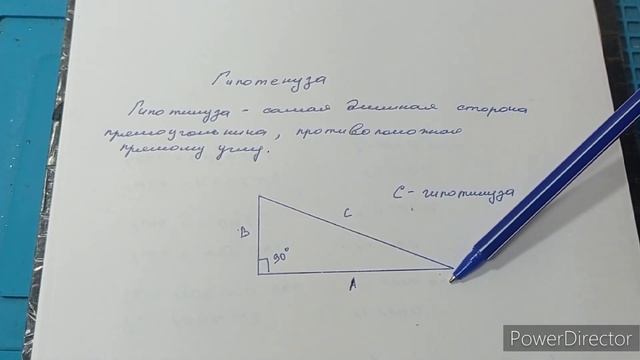 Гипотенуза
Гипотенуза - самая длинная сторона
прямоугольника, противоположная
прямому углу.
C - гипотенуза
C
B
90°
A
PowerDirector